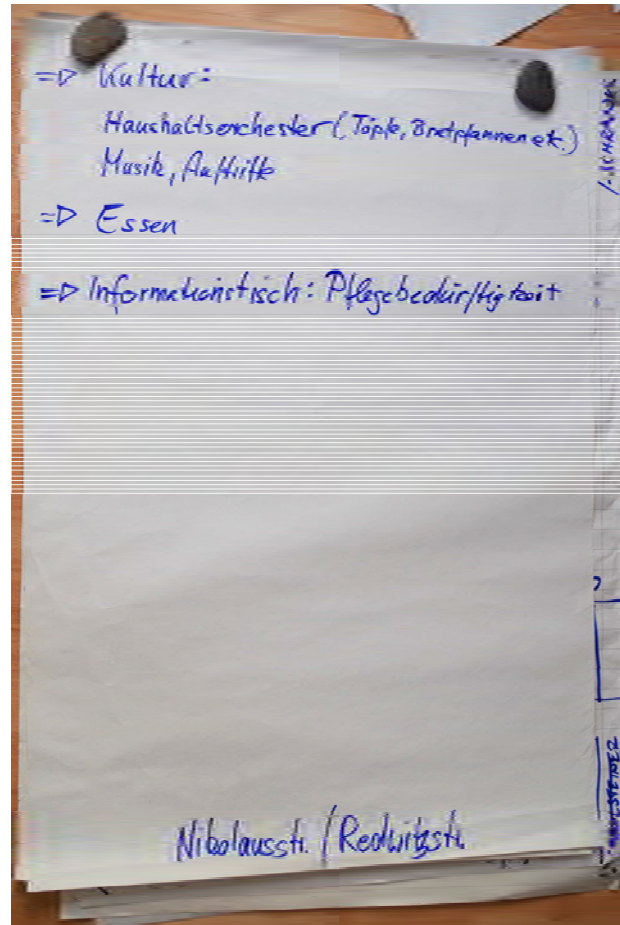 => Kultur:
Haushaltsorchester (Töpfe, Bratpfannen etc.)
Musik, Auftritte
=> Essen
=> Informationstisch: Pflegebedürftigkeit
Nikolausstr. / Redwitzstr.